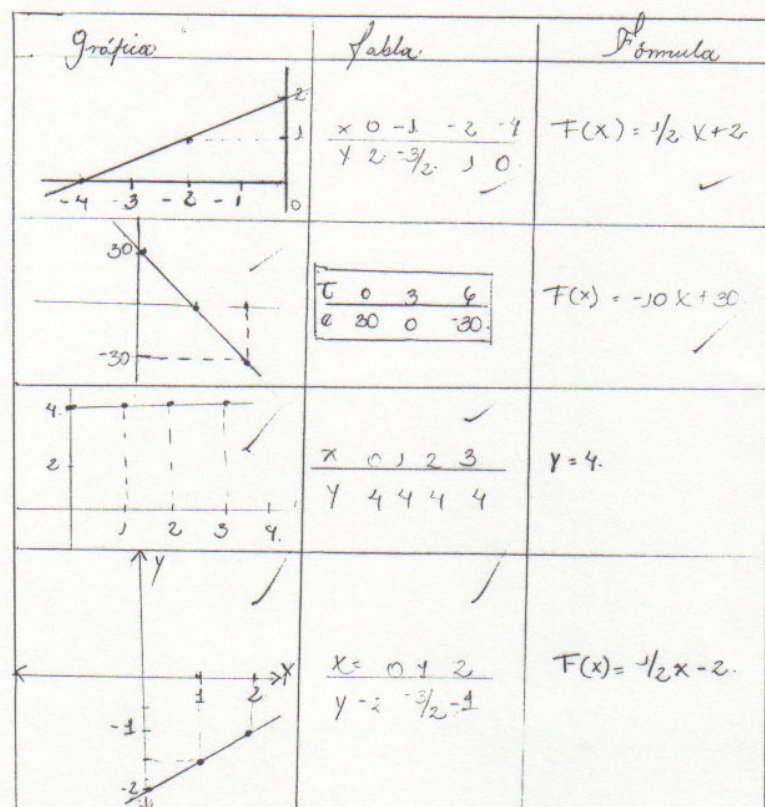 Gráfica Tabla Fórmula
2
1
0
-4 -3 -2 -1
x 0 -1 -2 -4
Y 2 -3/2 1 0
F(X) = 1/2 X+2
30
-30
T 0 3 6
e 30 0 -30
F(X) = -10 X+30
4
2
1 2 3 4
x 0 1 2 3
Y 4 4 4 4
Y = 4.
Y
X
1 2
-1
-2
X= 0 1 2
Y -2 -3/2 -1
F(X) = 1/2 X-2.